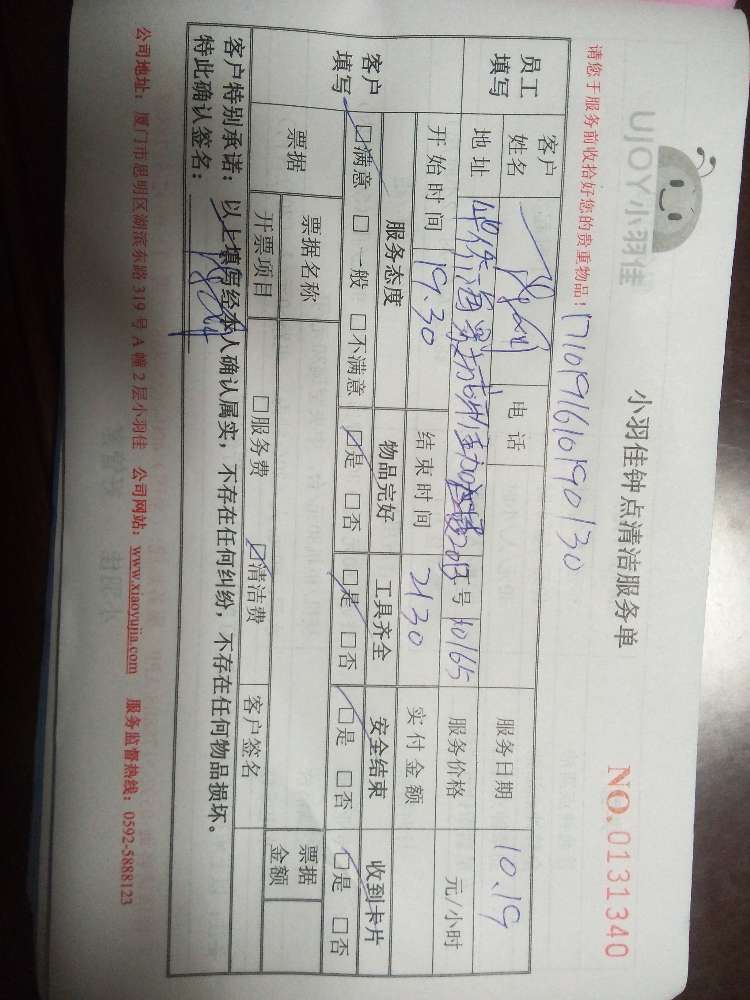 UJOY小羽佳
小羽佳钟点清洁服务单
NO. 0131340
请您于服务前收拾好您的贵重物品!
171019161019030
员工填写 客户姓名 电话 服务日期 10.19
地址 工号 10165 服务价格 元/小时
开始时间 19.30 结束时间 21 30 实付金额
客户填写 服务态度 物品完好 工具齐全 安全结束 收到卡片
☑满意 □一般 □不满意 ☑是 □否 ☑是 □否 ☑是 □否 ☑是 □否
票据 票据名称 票据金额
开票项目 □服务费 ☑清洁费 客户签名
客户特别承诺:以上填写经本人确认属实,不存在任何纠纷,不存在任何物品损坏。
特此确认签名:
公司地址:厦门市思明区湖滨东路 319 号 A 幢 2 层小羽佳 公司网站:www.xiaoyujia.com 服务监督热线:0592-5888123